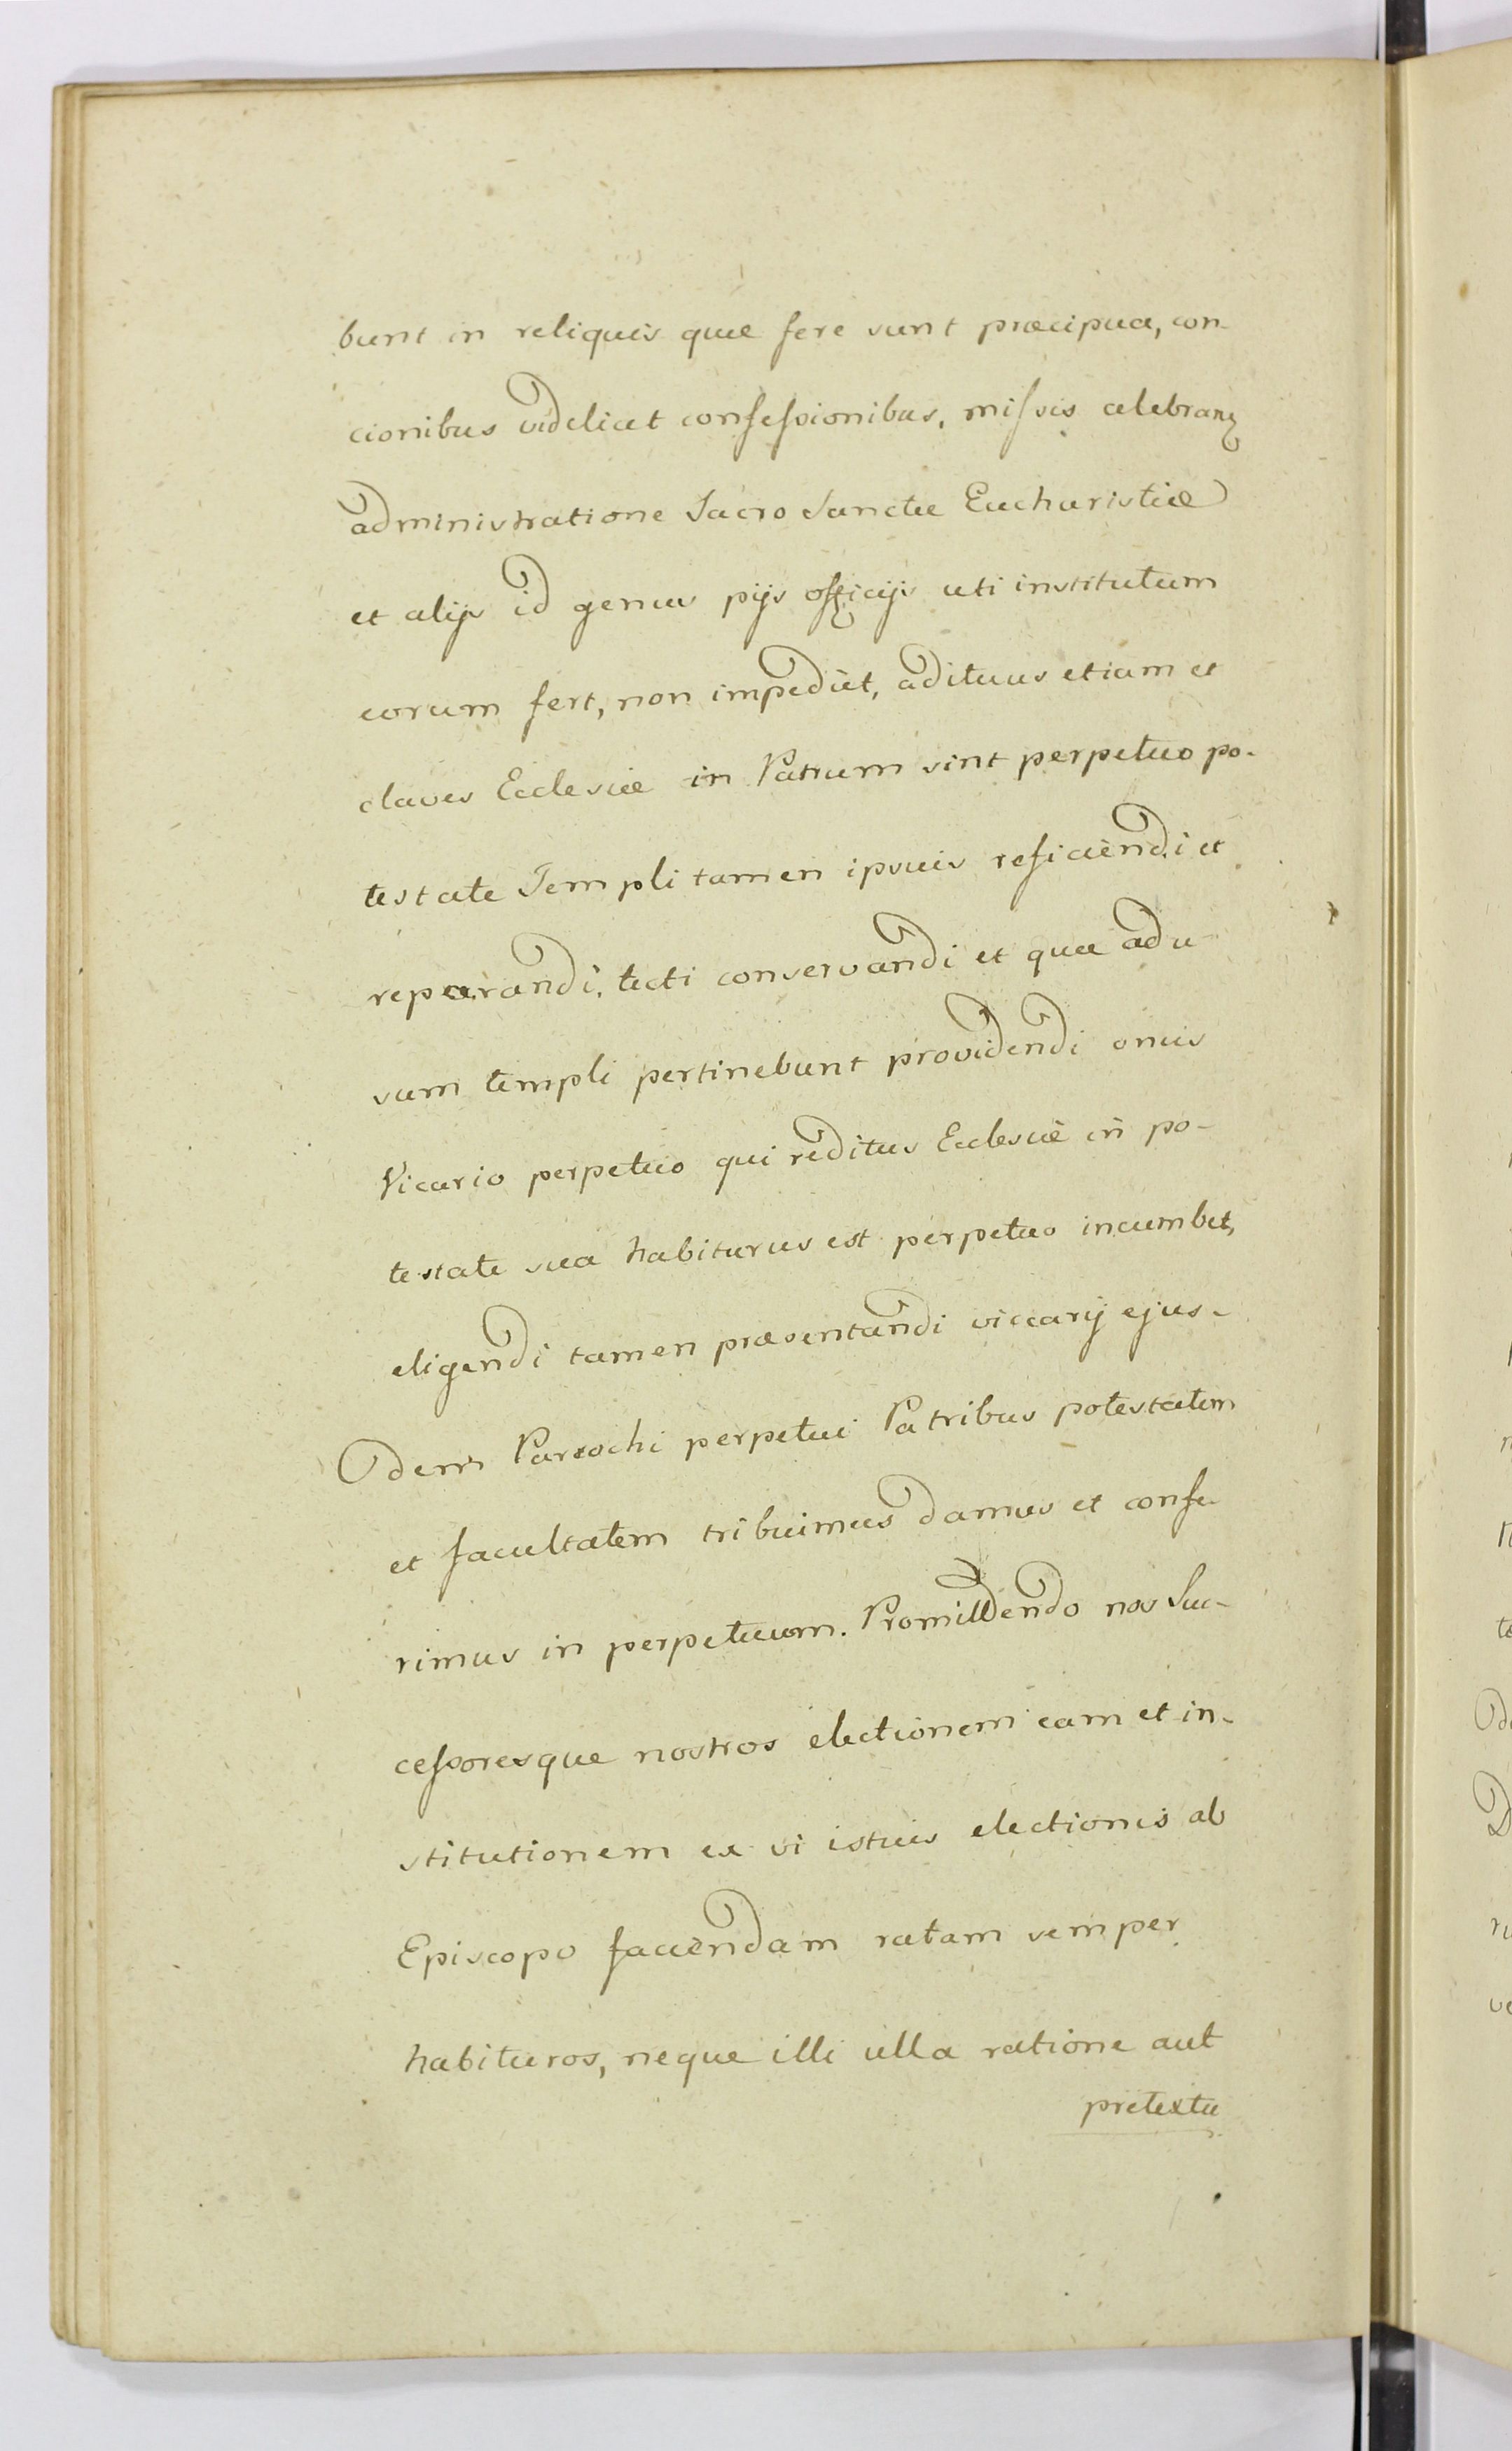 bunt in reliquis quae fere sunt praecipua, con-
cionibus videlicet confessionibus, missis celebranꝫ
administratione Sacro Sanctae Eucharistiae
et alijs id genus pijs officijs uti institutum
eorum fert, non impediet, adituus etiam et
claves Ecclesiae in Patrum sint perpetuo po-
testate Templi tamen ipsius reficiendi et
reparandi, tecti conservandi et quae ad u-
sum templi pertinebunt providendi onus
Vicario perpetuo qui reditus Ecclesiae in po-
testate sua habiturus est perpetuo incumbet,
eligendi tamen praesentandi viccarij ejus-
dem Parochi perpetui Patribus potestatem
et facultatem tribuimus damus et confe-
rimus in perpetuum. Promittendo nos Suc-
cessoresque nostros electionem eam et in-
stitutionem ex vi istius electionis ab
Episcopo faciendam ratam semper
habituros, neque illi ulla ratione aut
pretextu